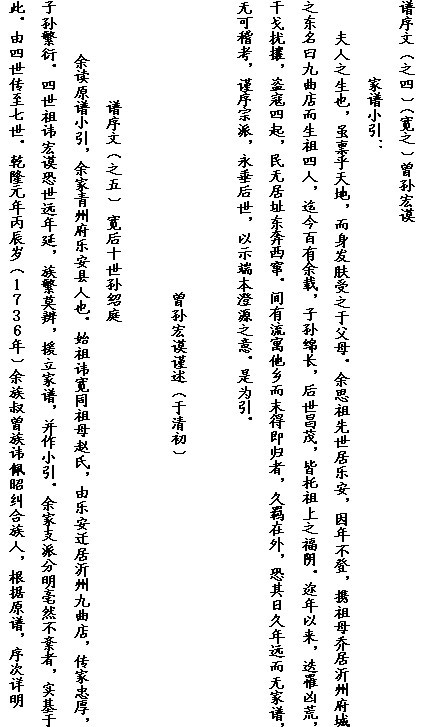 谱序文（之四）（宽之）曾孙宏谟
家谱小引：
夫人之生也，虽禀乎天地，而身发肤受之于父母。余思祖先世居乐安，因年不登，携祖母乔居沂州府城
之东名曰九曲店而生祖四人，迄今百有余载，子孙绵长，后世昌茂，皆托祖上之福阴。迩年以来，迭罹凶荒，
干戈扰攘，盗寇四起，民无居址东奔西窜。间有流寓他乡而未得即归者，久羁在外，恐其日久年远而无家谱，
无可稽考，谨序宗派，永垂后世，以示端本澄源之意。是为引。
曾孙宏谟谨述（于清初）
谱序文（之五） 宽后十世孙绍庭
余读原谱小引，余家青州府乐安县人也。始祖讳宽同祖母赵氏，由乐安迁居沂州九曲店，传家忠厚，
子孙繁衍。四世祖讳宏谟恐世远年延，族繁莫辨，援立家谱，并作小引。余家支派分明毫然不紊者，实基于
此。由四世传至七世。乾隆元年丙辰岁（1736年）余族叔曾族讳佩昭纠合族人，根据原谱，序次详明